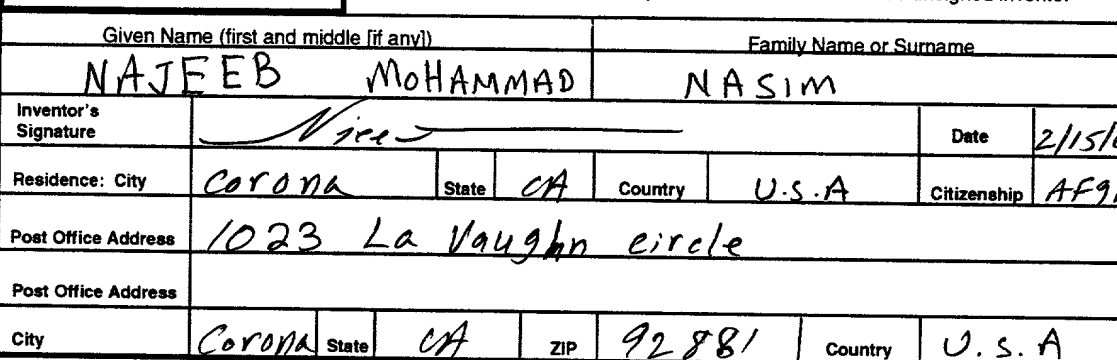 Given Name (first and middle [if any]) Family Name or Surname
NAJEEB MOHAMMAD NASIM
Inventor's
Signature Date 2/15/
Residence: City Corona State CA Country U.S.A Citizenship AFg
Post Office Address 1023 La Vaughn circle
Post Office Address
City Corona State CA ZIP 92881 Country U.S.A